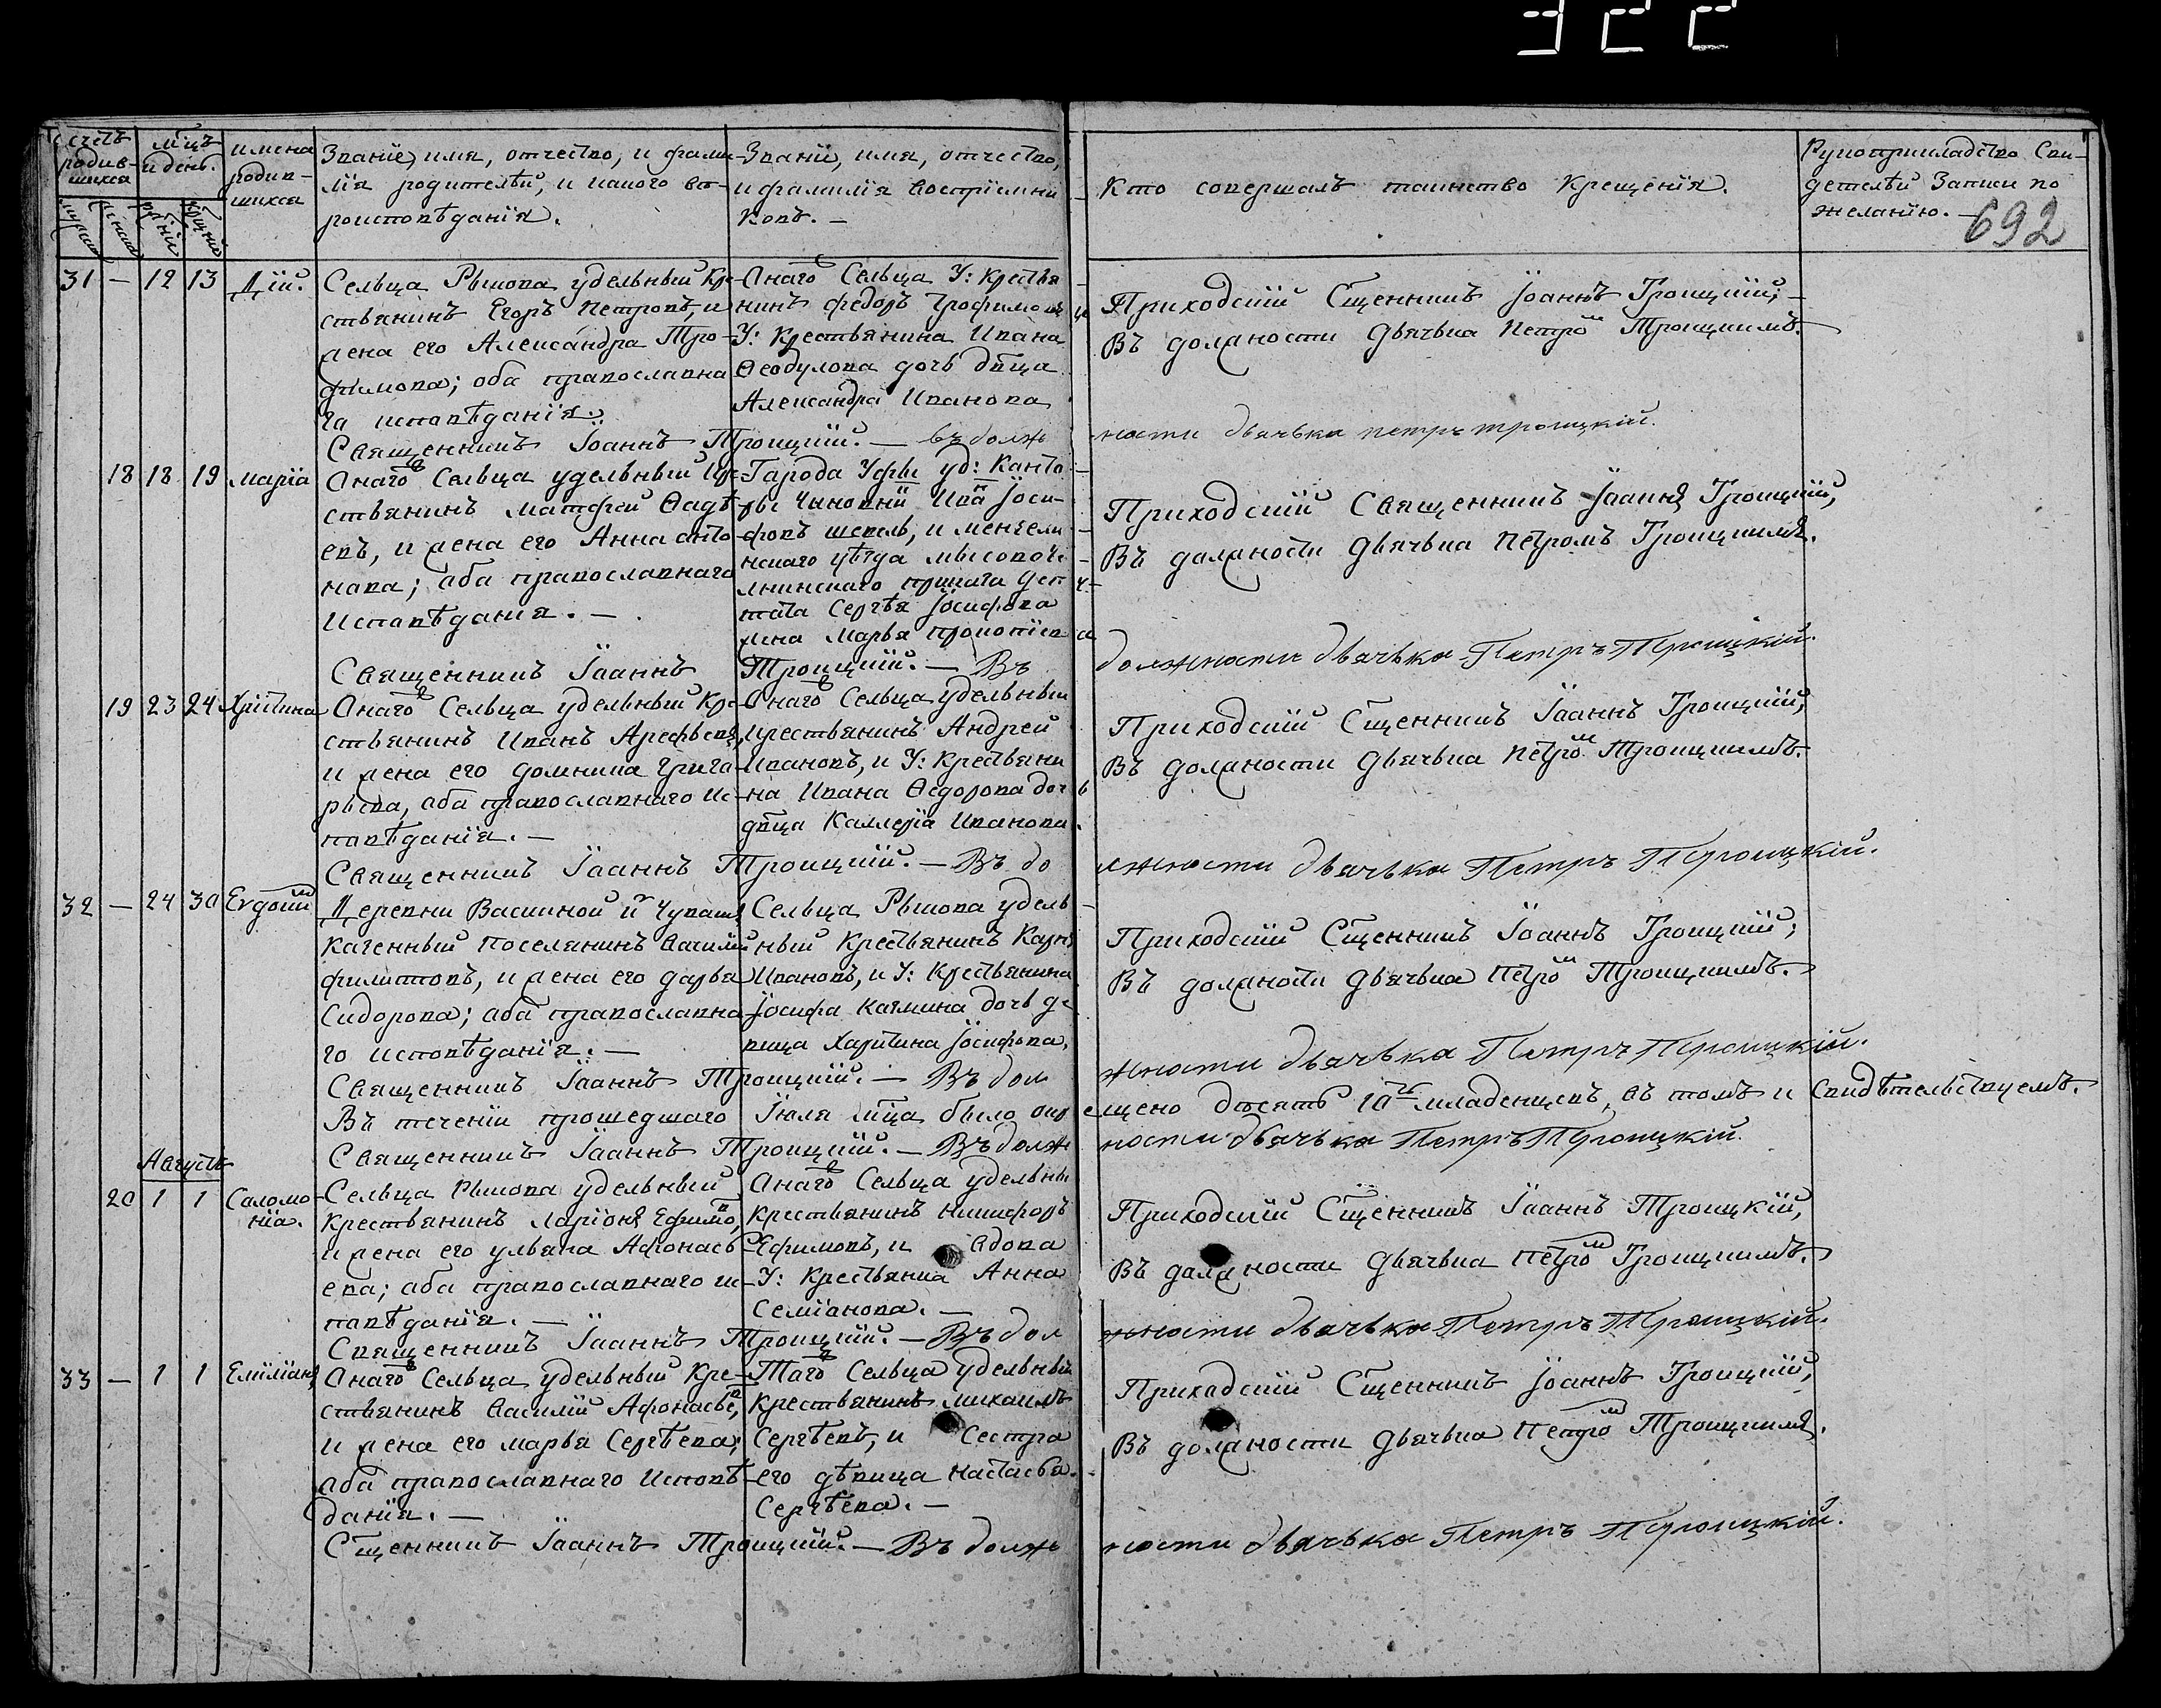 322
692
счетъ родив-шихся
мужска
женска
мѣцъ и день.
рожденій
крещеній
имена родив-шихся
Званіе, имя, отчество, и фами-
лія родителѣй, и какого вѣ-
роисповѣданія.
Званіе, имя, отчество,
и фамилія воспріемни
ковъ. —
Кто совершалъ таинство Крещенія.
Рукоприкладство Сви-
детелѣй Записи по
желанію. —
31 — 12 13 Дій.
Сельца Рыкова удельный Кре-
стьянинъ Егоръ Петровъ, и
жена его Александра Тро-
фимова; оба православна
го исповѣданія.
Онаго Сельца У: Крестья
нинъ Федоръ Трофимовъ
У: Крестьянина Ивана
Ѳеодулова дочь дѣца
Александра Иванова
Приходскій Сщенникъ Іоаннъ Троицкій;
Въ должности Дьячька Петромъ Троицкимъ.
Священникъ Іоаннъ Троицкій. — въ долж
ности дьячька петръ троицкій.
18 18 19 Марія
Онаго Сельца удельный Кре-
стьянинъ Матфей Ѳадѣ
евъ, и жена его Анна Анто
нова; оба православнаго
Исповѣданія. —
Города Уфы уд: Канто
ры Чиновникъ Иванъ Іоси-
фовъ шепель, и мензели
нскаго уѣзда
Сергѣя Іосифова
жена Марья Прокопіева
Приходскій Священникъ Іоаннъ Троицкій,
Въ должности Дьячька Петромъ Троицкимъ.
Священникъ Іоаннъ Троицкій. — Въ
должности дьячька Петръ Троицкій.
19 23 24 Хрістина
Онаго Сельца удельный Кре-
стьянинъ Иванъ Арефьевъ,
и жена его домника Григо
рьева, оба православнаго Ис-
повѣданія. —
Онаго Сельца удельный
крестьянинъ Андрей
Ивановъ, и У: Крестьяни
на Ивана Ѳедорова доч
ь
дѣца Каллерія Иванова.
Приходскій Сщенникъ Іоаннъ Троицкій,
Въ должности Дьячька Петромъ Троицкимъ.
Священникъ Іоаннъ Троицкій. — Въ до
лжности дьячька Петръ Троицкій.
32 — 24 30 Евдокимъ
Деревни Васкиной и Чуваш
казенный поселянинъ Василій
филиповъ, и жена его дарья
Сидорова; оба православна
го исповѣданія. —
Сельца Рыкова удель
ный Крестьянинъ Карпъ
Ивановъ, и У: Крестьянина
Іосифа Казмина дочь де
вица Харитина Іосифова.
Приходскій Сщенникъ Іоаннъ Троицкій;
Въ должности Дьячька Петромъ Троицкимъ.
Священникъ Іоаннъ Троицкій. — Въ дол
жности дьячька Петръ Троицкій.
Въ теченіи прошедшаго Іюля мѣца было окр ещено десять 10ть младенцевъ, въ томъ и Свидѣтельствуемъ.
Священникъ Іоаннъ Троицкій. — Въ долж
ности дьячька Петръ Троицкій.
Августъ
20 1 1 Саломо-
нія.
Сельца Рыкова удельный
крестьянинъ Ларіонъ Ефимовъ,
и жена его ульяна Афонась
ева; оба православнаго ис-
повѣданія. —
Онаго Сельца удельны
крестьянинъ никифоръ
Ефимовъ, и вдова
У: Крестьянка Анна
Семіонова. —
Приходскій Сщенникъ Іоаннъ Троицкій,
Въ должности Дьячька Петромъ Троицкимъ.
Священникъ Іоаннъ Троицкій. — Въ дол
жности дьячька Петръ Троицкій.
33 — 1 1 Емиліанъ
Онаго Сельца удельный Кре-
стьянинъ Василій Афонасьевъ,
и жена его марья Сергѣева;
оба православнаго Исповѣ-
данія. —
Того Сельца удельный
крестьянинъ михаилъ
Сергѣевъ, и Сестра
его дѣвица Настасья.
Сергѣева. —
Приходскій Сщенникъ Іоаннъ Троицкій,
Въ должности Дьячька Петромъ Троицкимъ.
Сщенникъ Іоаннъ Троицкій. — Въ долж
ности дьячька Петръ Троицкій.